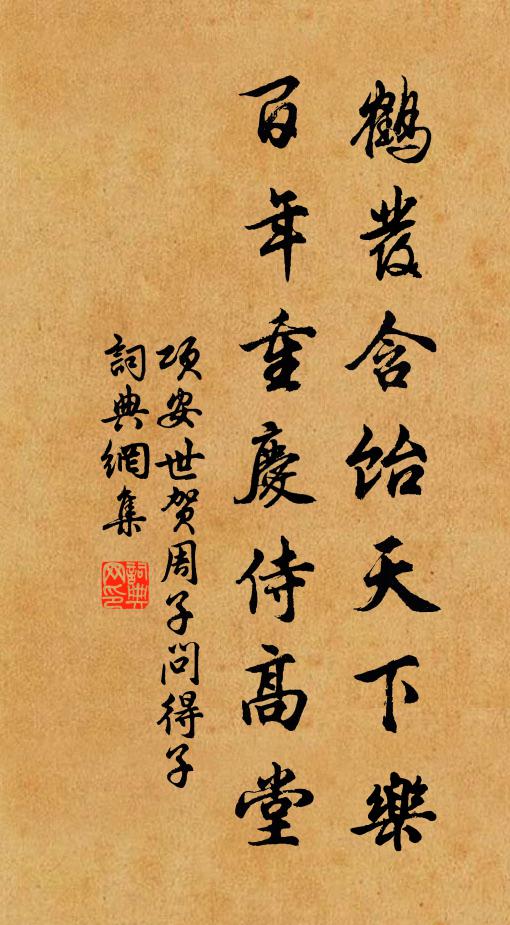 鶴發含飴天下樂
百年重慶侍高堂
項安世賀周子問得子
詞典網集
詞典網印